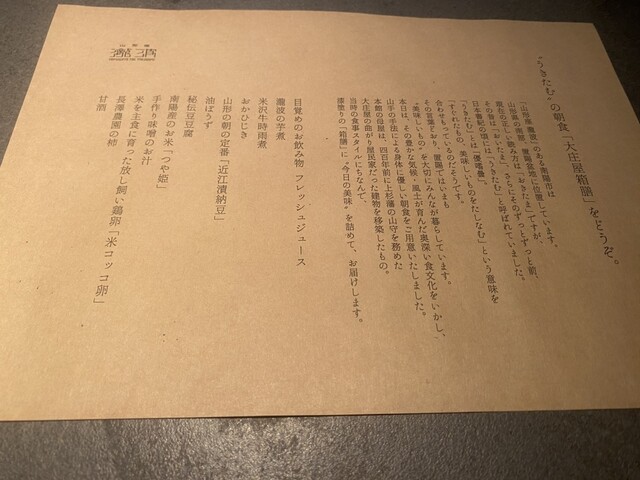 "うきたむ"の朝食「大庄屋箱膳」をどうぞ。
「山形座 瀧波」のある南陽市は
山形県の南部、置賜盆地に位置しています。
現在の正しい読み方は「おきたま」ですが、
その昔は「おいたま」、さらにそのずっとずっと前、
日本書紀の頃には「うきたむ」と呼ばれていました。
「うきたむ」とは「優嗜曇」。
「すぐれたもの、美味しいものをたしなむ」という意味を
合わせもっているものだそうです。
その言葉どおり、置賜ではいまも
"美味しいもの"を大切にみんなが暮らしています。
本日は、その豊かな気候・風土が育んだ奥深い食文化をいかし、
山手の作法による身体に優しい朝食をご用意いたしました。
本館の母屋は、四百年前に上杉藩の山守を務めた
大庄屋の曲がり屋民家だった建物を移築したもの。
当時の食事スタイルにちなんで、
漆塗りの「箱膳」に"今日の美味"を詰めて、お届けします。
目覚めのお飲み物 フレッシュジュース
瀧波の芋煮
米沢牛時雨煮
おかひじき
山形の朝の定番「近江漬納豆」
油ぼうず
秘伝豆豆腐
南陽産のお米「つや姫」
手作り味噌のお汁
米を主食に育った放し飼い鶏卵「米コッコ卵」
長澤農園の柿
甘酒
山形座
瀧波